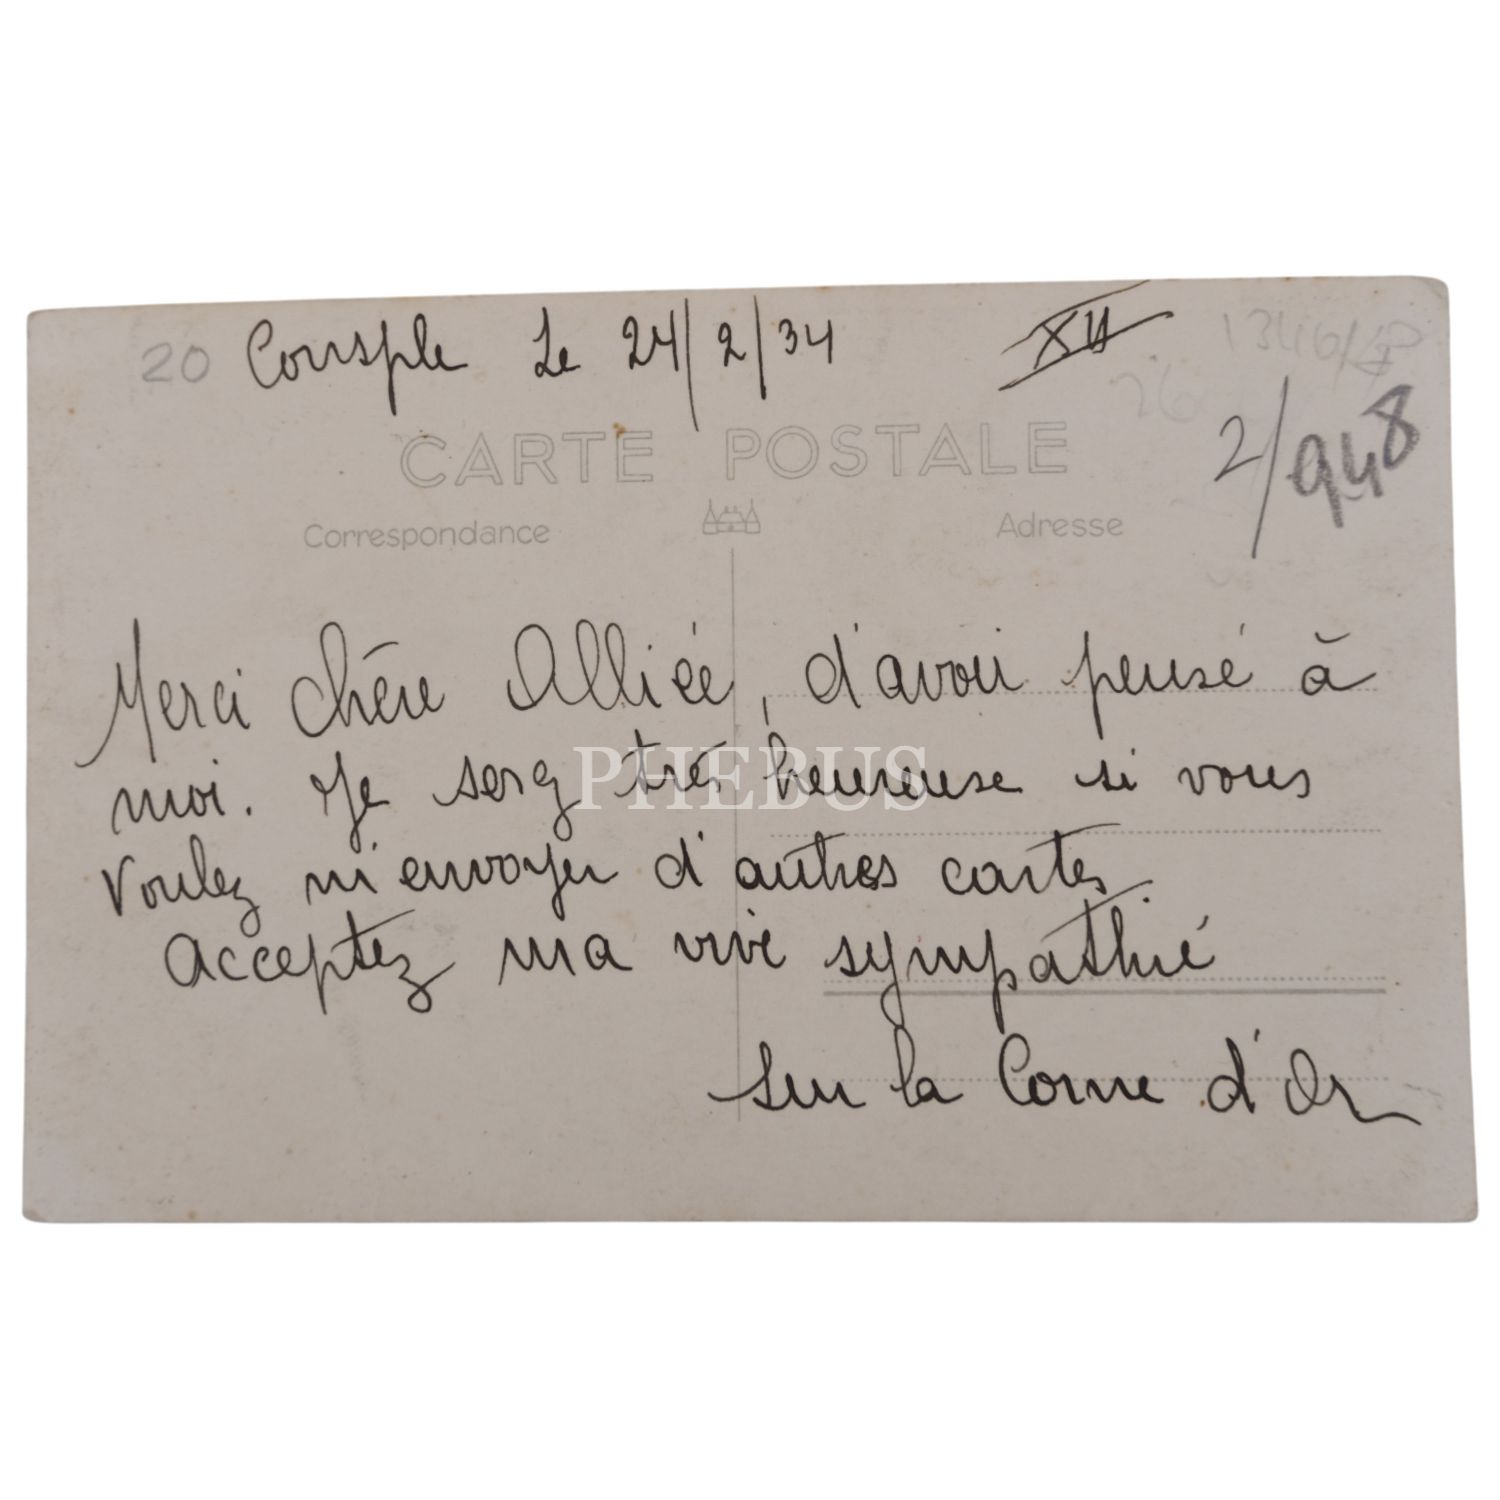 20 Consple Le 24/2/34 XII
2/948
CARTE POSTALE
Correspondance Adresse
Merci chère Alliée, d'avoir pensé à
moi. Je serai très heureuse si vous
voulez m'envoyer d'autres cartes
Acceptez ma vive sympathie
Sur la Corne d'Or
PHEBUS